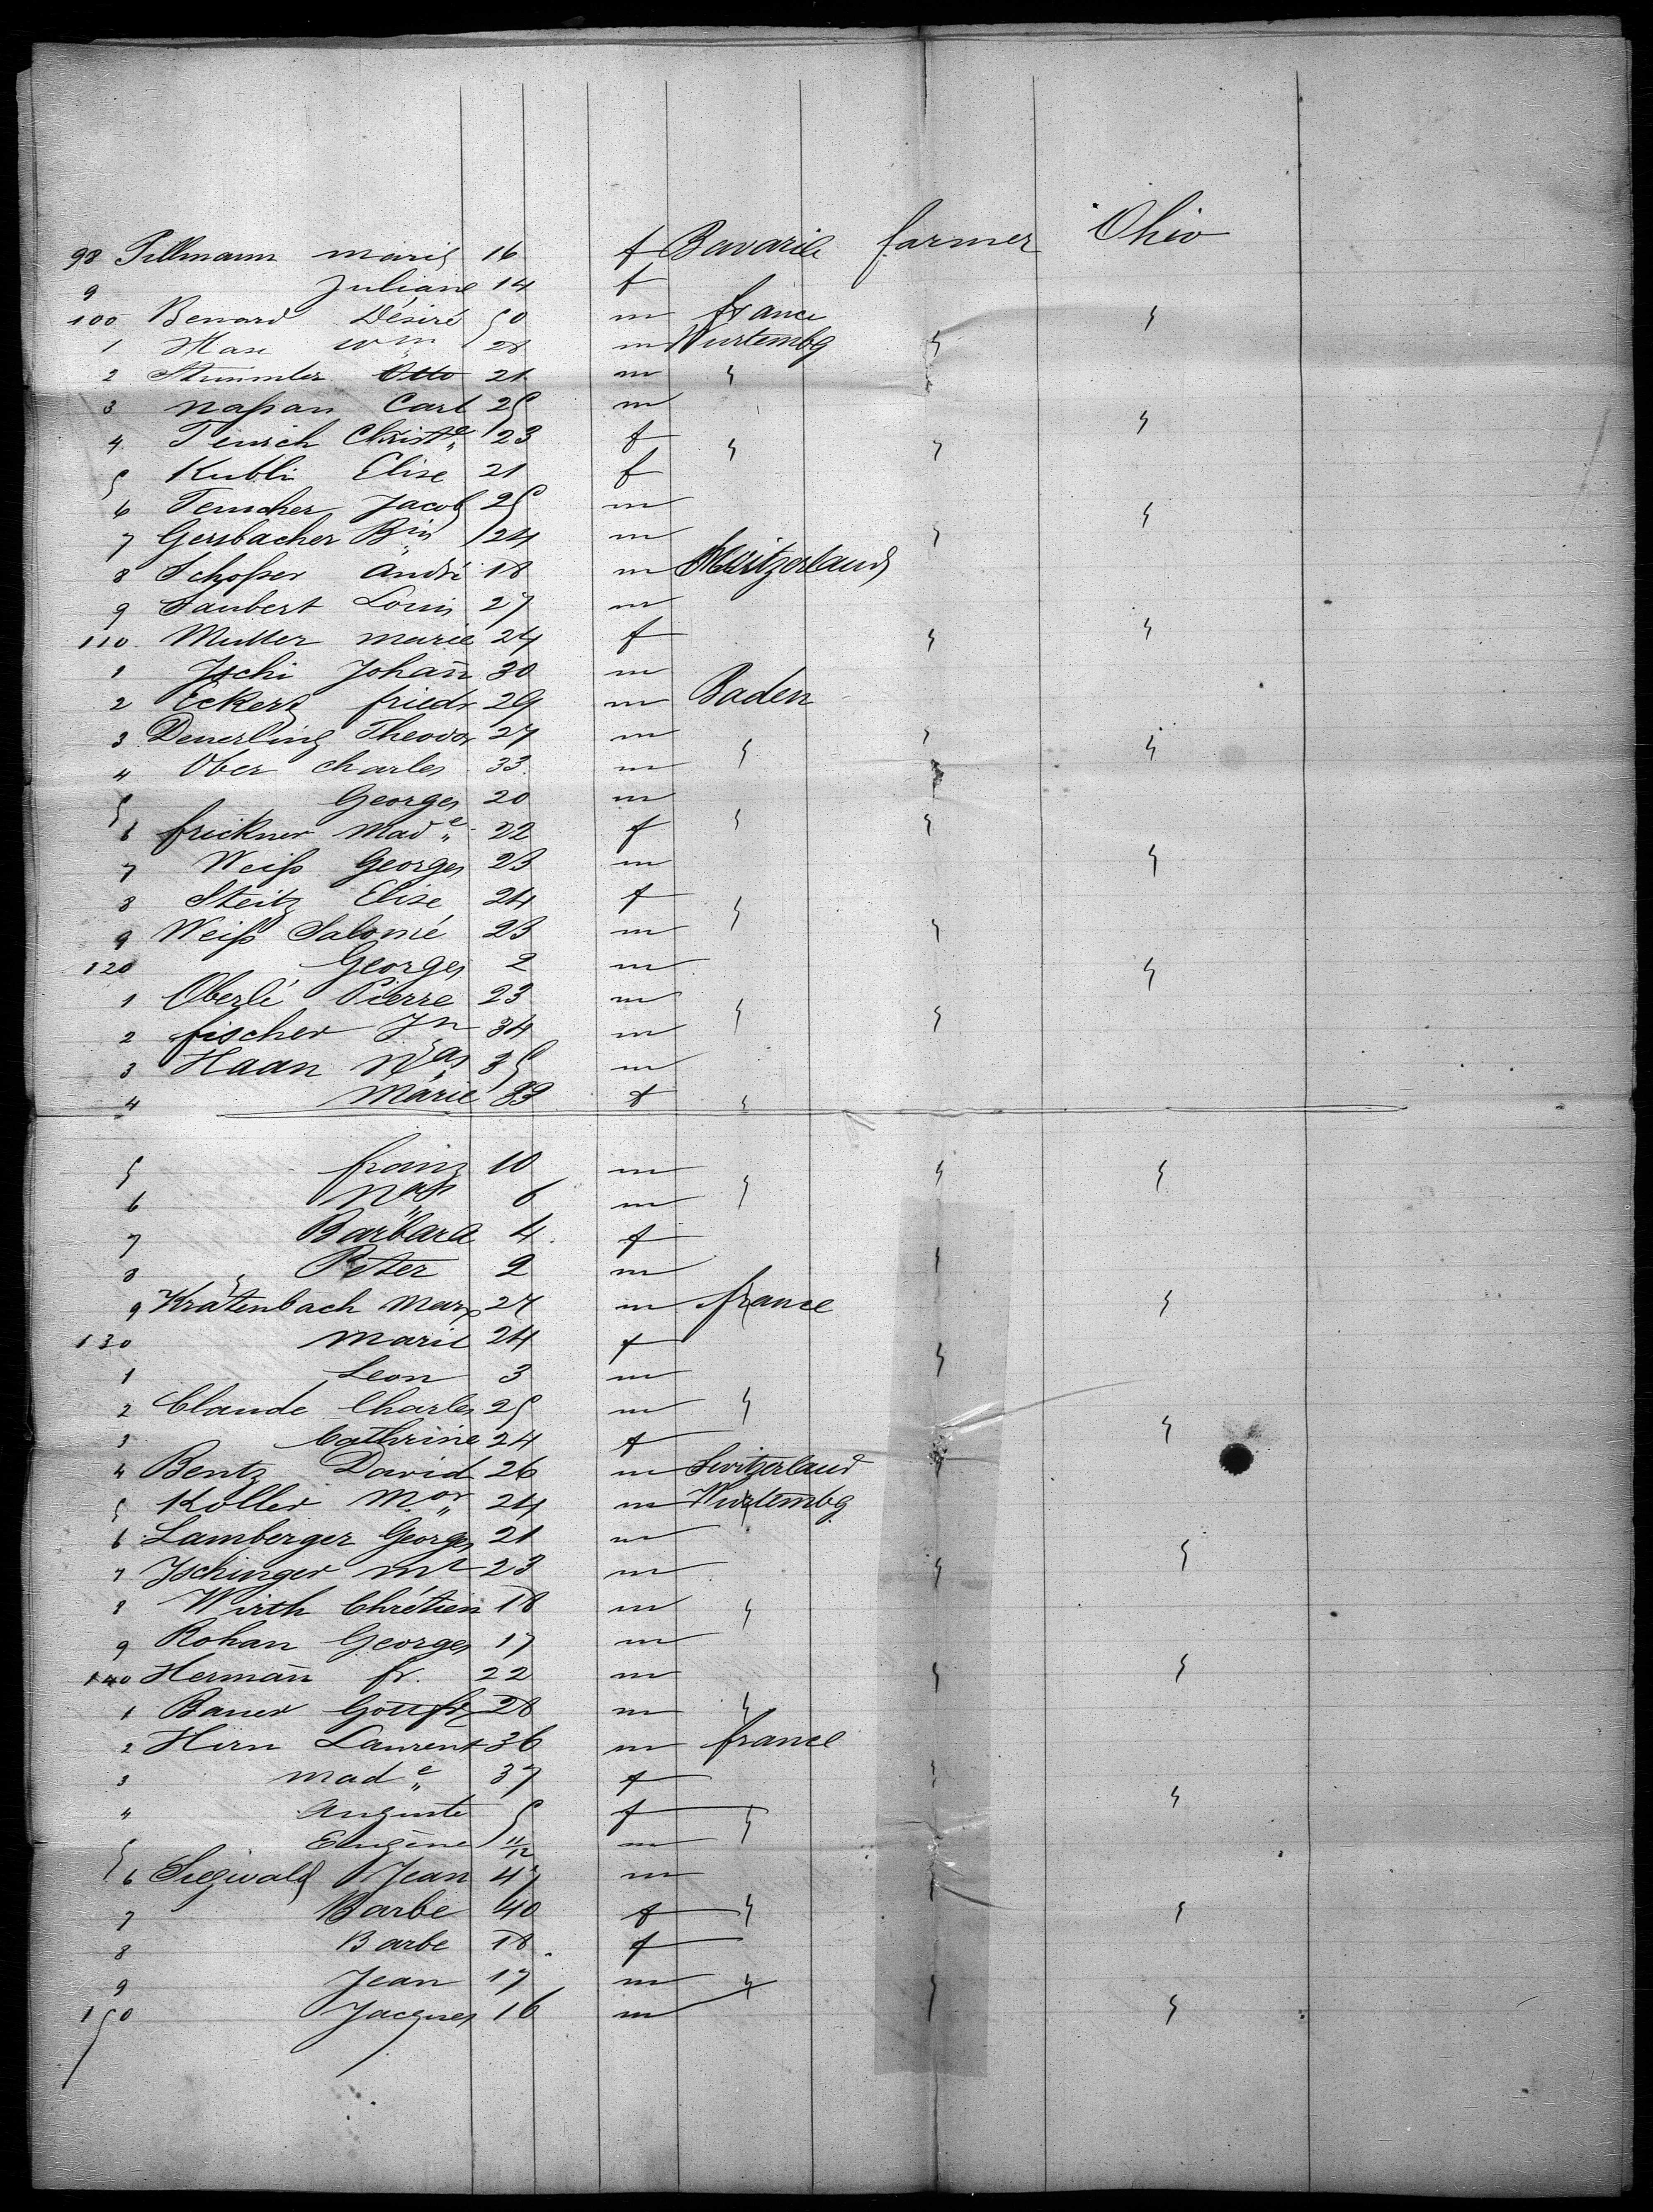 98 Tillmann Marie 16 f Bavaria farmer Ohio
9 Juliane 14 f
100 Benard Désiré 50 m france
1 Hase Wm 28 m Wurtembg
2 Stummler Otto 21 m
3 Naßan Carl 25 m
4 Teusch Christe 23 f
5 Kubli Elise 21 f
6 Teuscher Jacob 25 m
7 Gersbacher Bin 24 m
8 Schoßer André 18 m Switzerland
9 Saubert Louis 27 m
110 Muller Marie 24 f
1 Jschi Johan̄ 30 m
2 Eckert friedr 29 m Baden
3 Deuerling Theodor 27 m
4 Ober Charles 33 m
5 Georges 20 m
6 frickner Made 22 f
7 Weiß Georges 23 m
8 Steitz Elise 24 f
9 Weiß Salomé 23 m
120 Georges 2 m
1 Oberlé Pierre 23 m
2 fischer Jn 34 m
3 Haan Nas 35 m
4 Marie 33 f
5 franz 10 m
6 Nas 6 m
7 Barbara 4 f
8 Peter 2 m
9 Kratenbach Marx 27 m france
130 Marie 24 f
1 Leon 3 m
2 Claude Charles 25 m
3 Cathrine 24 f
4 Bentz David 26 m Switzerland
5 Koller Mor 24 m Wurtembg
6 Lamberger Georges 21 m
7 Jschinger Mr 23 m
8 Wirth Chrétien 18 m
9 Rohan Georges 17 m
140 Herman̄ fr. 22 m
1 Bauer Gottfr 28 m
2 Hirn Laurent 36 m france
3 Made 37 f
4 Auguste 5 f
5 Eugène 11/12 m
6 Siegwald Jean 47 m
7 Barbe 40 f
8 Barbe 18 f
9 Jean 17 m
150 Jacques 16 m